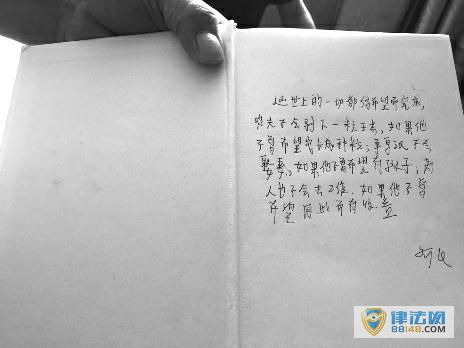 这世上的一切都借希望而完成,
农夫不会剥下一粒玉米,如果他
不曾希望它长成种粒;单身汉不会
娶妻,如果他不曾希望有孩子;商
人也不会去工作,如果他不曾
希望因此而有收益
律法网
88148.COM